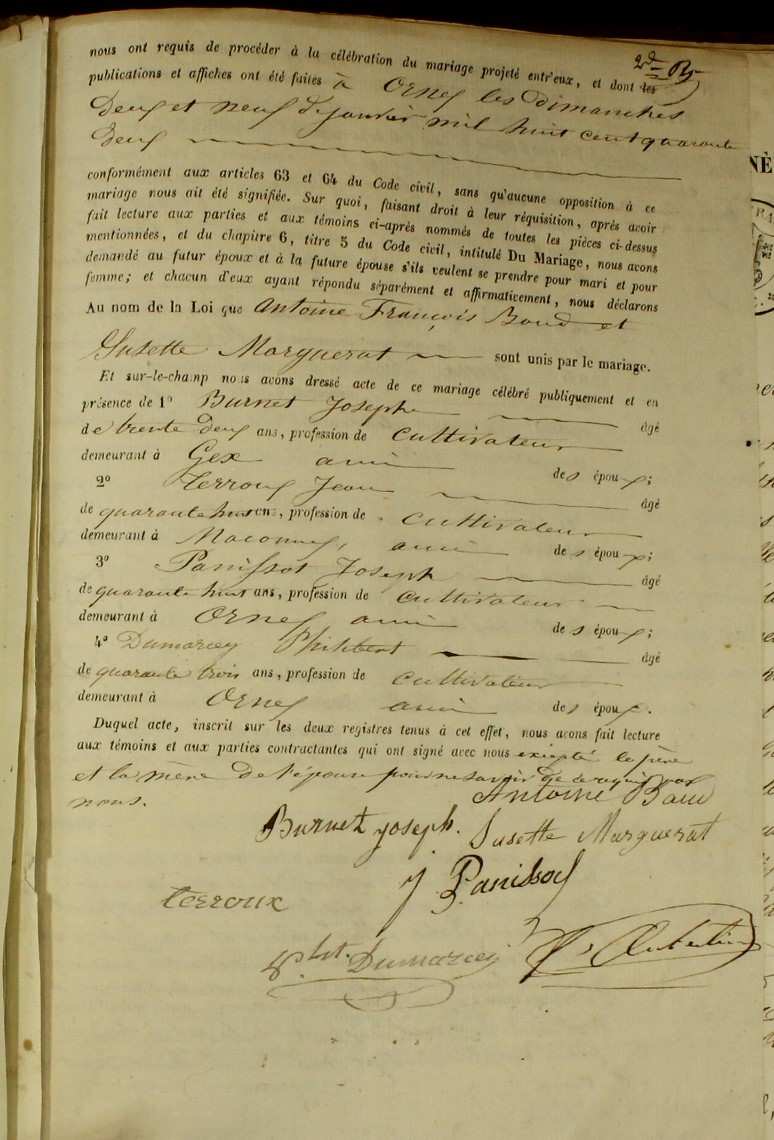 2de
nous ont requis de procéder à la célébration du mariage projeté entr'eux, et dont les
publications et affiches ont été faites à Ornex les dimanches
Deux et neuf de janvier mil huit cent quarante
Deux
conformément aux articles 63 et 64 du Code civil, sans qu'aucune opposition à ce
mariage nous ait été signifiée. Sur quoi, faisant droit à leur réquisition, après avoir
fait lecture aux parties et aux témoins ci-après nommés de toutes les pièces ci-dessus
mentionnées, et du chapitre 6, titre 5 du Code civil, intitulé Du Mariage, nous avons
demandé au futur époux et à la future épouse s'ils veulent se prendre pour mari et pour
femme; et chacun d'eux ayant répondu séparément et affirmativement, nous déclarons
Au nom de la Loi que Antoine François Baud et
Susette Marguerat sont unis par le mariage.
Et sur-le-champ nous avons dressé acte de ce mariage célébré publiquement et en
présence de 1º Burnet Joseph âgé
de trente deux ans, profession de cultivateur
demeurant à Gex ami des époux;
2º Terroux Jean âgé
de quarante huit ans, profession de cultivateur
demeurant à ami des époux;
3º Panissot Joseph âgé
de quarante huit ans, profession de cultivateur
demeurant à Ornex ami des époux;
4º Dumarcey Philibert âgé
de quarante trois ans, profession de cultivateur
demeurant à Ornex ami des époux.
Duquel acte, inscrit sur les deux registres tenus à cet effet, nous avons fait lecture
aux témoins et aux parties contractantes qui ont signé avec nous excepté le père
et la mère de l'épouse pour ne savoir de ce requis par
nous.
Antoine Baud
Burnet joseph. Susette Marguerat
J Panissod
terroux
Phbt. Dumarcey